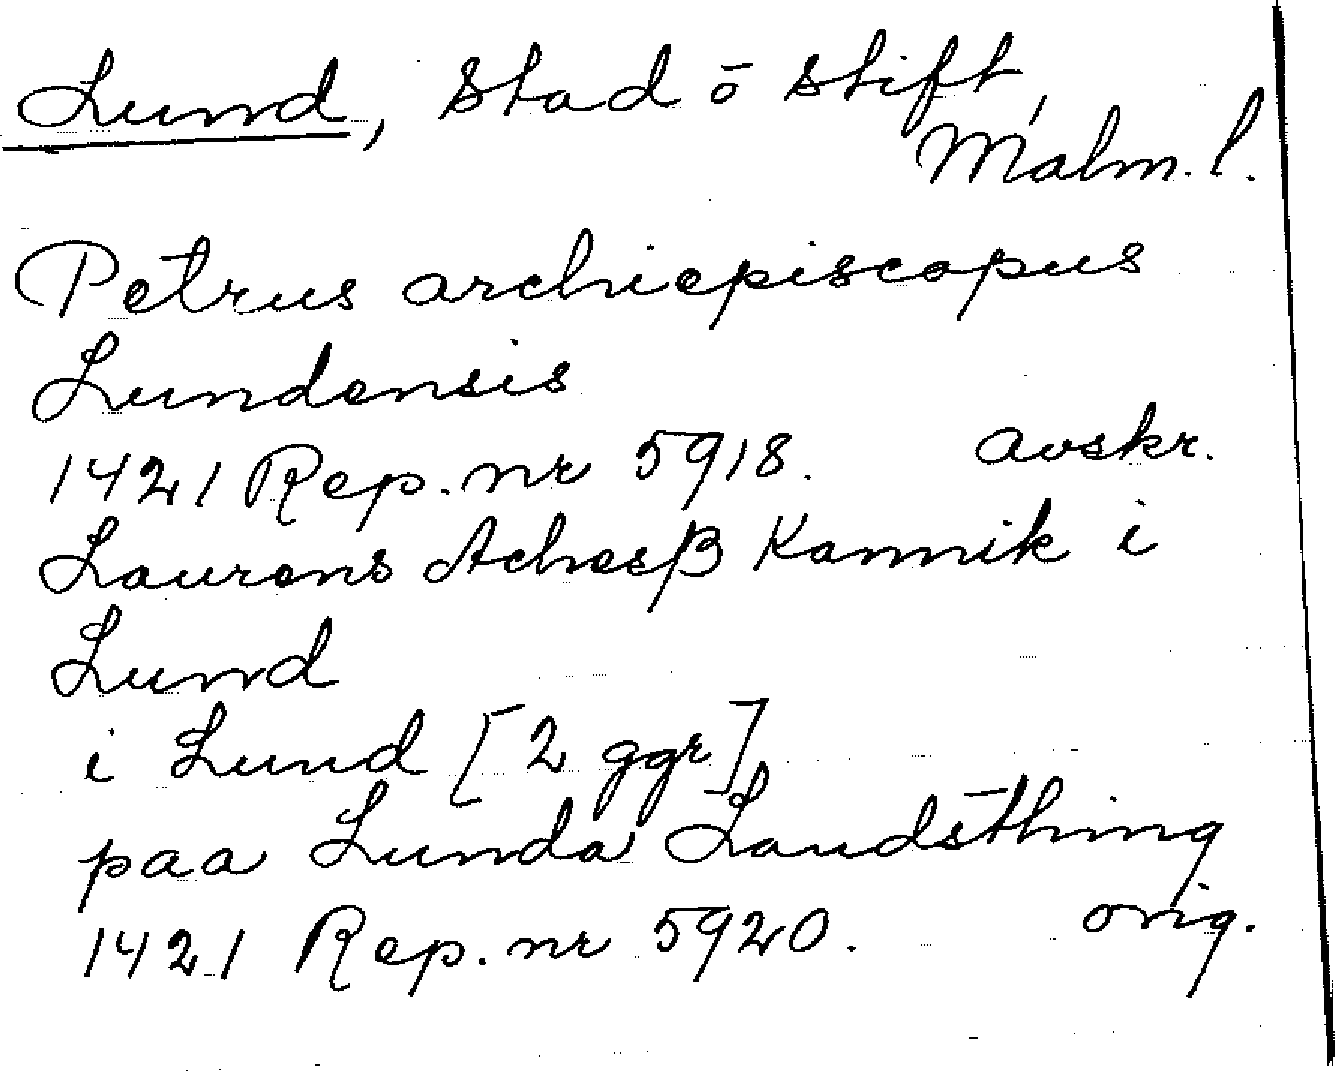 Lund, Stad ō Stift,
Malm. l.
Petrus archiepiscopus
Lundensis
1421 Rep. nr 5918. avskr.
Laurens Achesβ Kannik i
Lund
i Lund [2 ggr]
paa Lunda Landsthing
1421 Rep. nr 5920. orig.